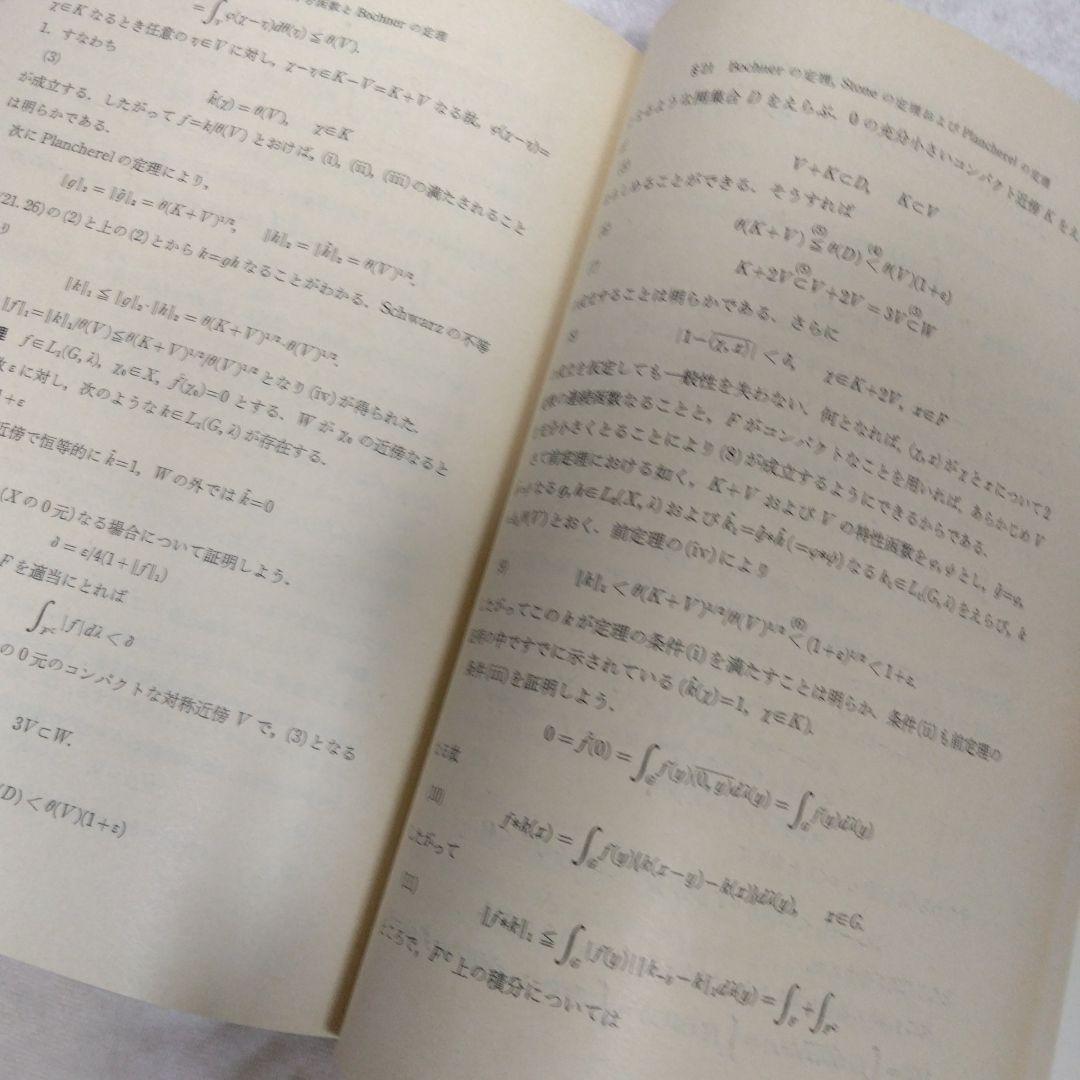 函数と Bochner の定理
=∫_V φ(χ−τ)dθ(τ)≦θ(V).
χ∈K なるとき任意の τ∈V に対し, χ−τ∈K−V=K+V なる故, φ(χ−τ)=
1. すなわち
(3) k̂(χ)=θ(V), χ∈K
が成立する. したがって f=k/θ(V) とおけば, (i), (ii), (iii)の満たされること
は明らかである.
次に Plancherel の定理により,
‖g‖₂=‖ĝ‖₂=θ(K+V)^{1/2}, ‖h‖₂=‖ĥ‖₂=θ(V)^{1/2}.
(21.26)の(2)と上の(2)とから k=gh なることがわかる. Schwarz の不等
り
‖k‖₁≦‖g‖₂·‖h‖₂=θ(K+V)^{1/2}·θ(V)^{1/2}.
‖f‖₁=‖k‖₁/θ(V)≦θ(K+V)^{1/2}/θ(V)^{1/2} となり (iv) が得られた.
理 f∈L₁(G, λ), χ₀∈X, f̂(χ₀)=0 とする. W が χ₀ の近傍なると
数 ε に対し, 次のような k∈L₁(G, λ) が存在する.
1+ε
近傍で恒等的に k̂=1, W の外では k̂=0
(X の 0 元) なる場合について証明しよう.
∂=ε/4(1+‖f‖₁)
F を適当にとれば
∫_{F^c}|f|dλ<∂
の 0 元のコンパクトな対称近傍 V で, (3)となる
3V⊂W.
(D)<θ(V)(1+ε)
Bochner の定理, Stone の定理および Plancherel の定理
なるような開集合 D をえらぶ. 0 の充分小さいコンパクト近傍 K をえ
V+K⊂D, K⊂V
ることができる. そうすれば
θ(K+V)≦θ(D)<θ(V)(1+ε)
K+2V⊂V+2V=3V⊂W
することは明らかである. さらに
|1−\overline{(χ, x)}|<∂, χ∈K+2V, x∈F
を仮定しても一般性を失わない. 何となれば, (χ, x) が χ と x について 2
の連続函数なることと, F がコンパクトなことを用いれば, あらかじめ V
を充分小さくとることにより (8) が成立するようにできるからである.
前定理における如く, K+V および V の特性函数を φ, ψ とし, ĝ=φ,
なる g, h∈L₂(X, λ) および k̂₁=ĝ*ĥ(=φ*ψ) なる k₁∈L₁(G, λ) をえらび, k
θ(V) とおく. 前定理の (iv) により
‖k‖₁<θ(K+V)^{1/2}/θ(V)^{1/2}<(1+ε)^{1/2}<1+ε.
したがってこの k が定理の条件(i) を満たすことは明らか, 条件(ii) も前定理の
証明の中ですでに示されている (k̂(χ)=1, χ∈K).
条件(iii) を証明しよう.
0=f̂(0)=∫_G f(y)\overline{(0, y)}dλ(y)=∫_G f(y)dλ(y)
なる故
(10) f*k(x)=∫_G f(y){k(x−y)−k(x)}dλ(y), x∈G.
したがって
(11) ‖f*k‖₁≦∫_G |f(y)|‖k_{−y}−k‖₁dλ(y)=∫_F+∫_{F^c}
ところで, F^c 上の積分については